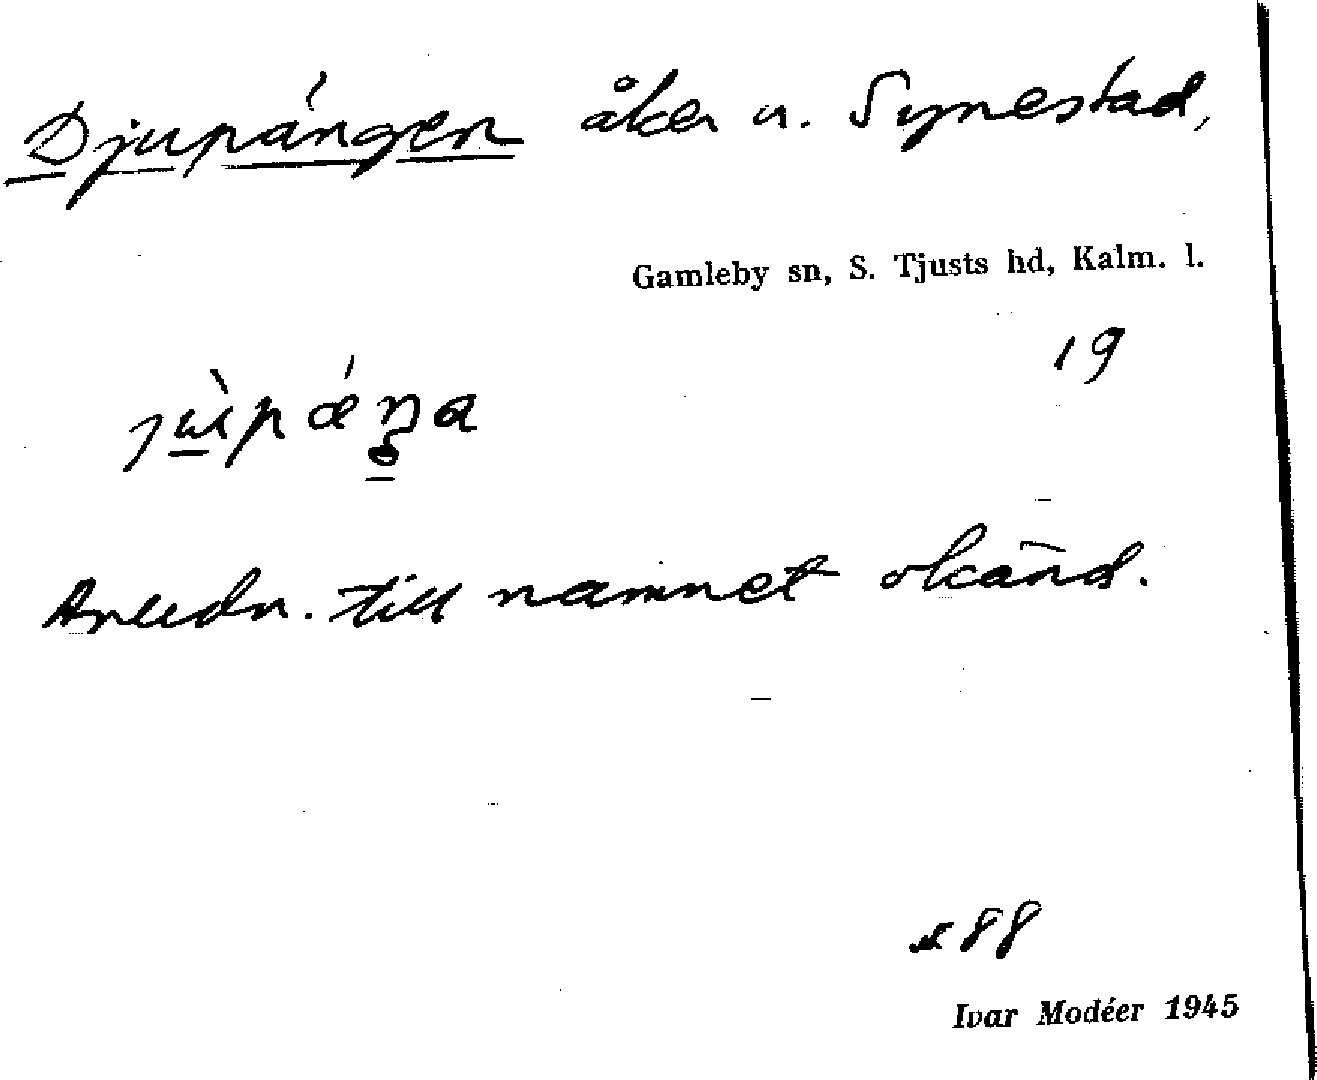 Djupängen åker u. Synestad,
Gamleby sn, S. Tjusts hd, Kalm. l.
19
Anledn. till namnet okänd.
88
Ivar Modéer 1945